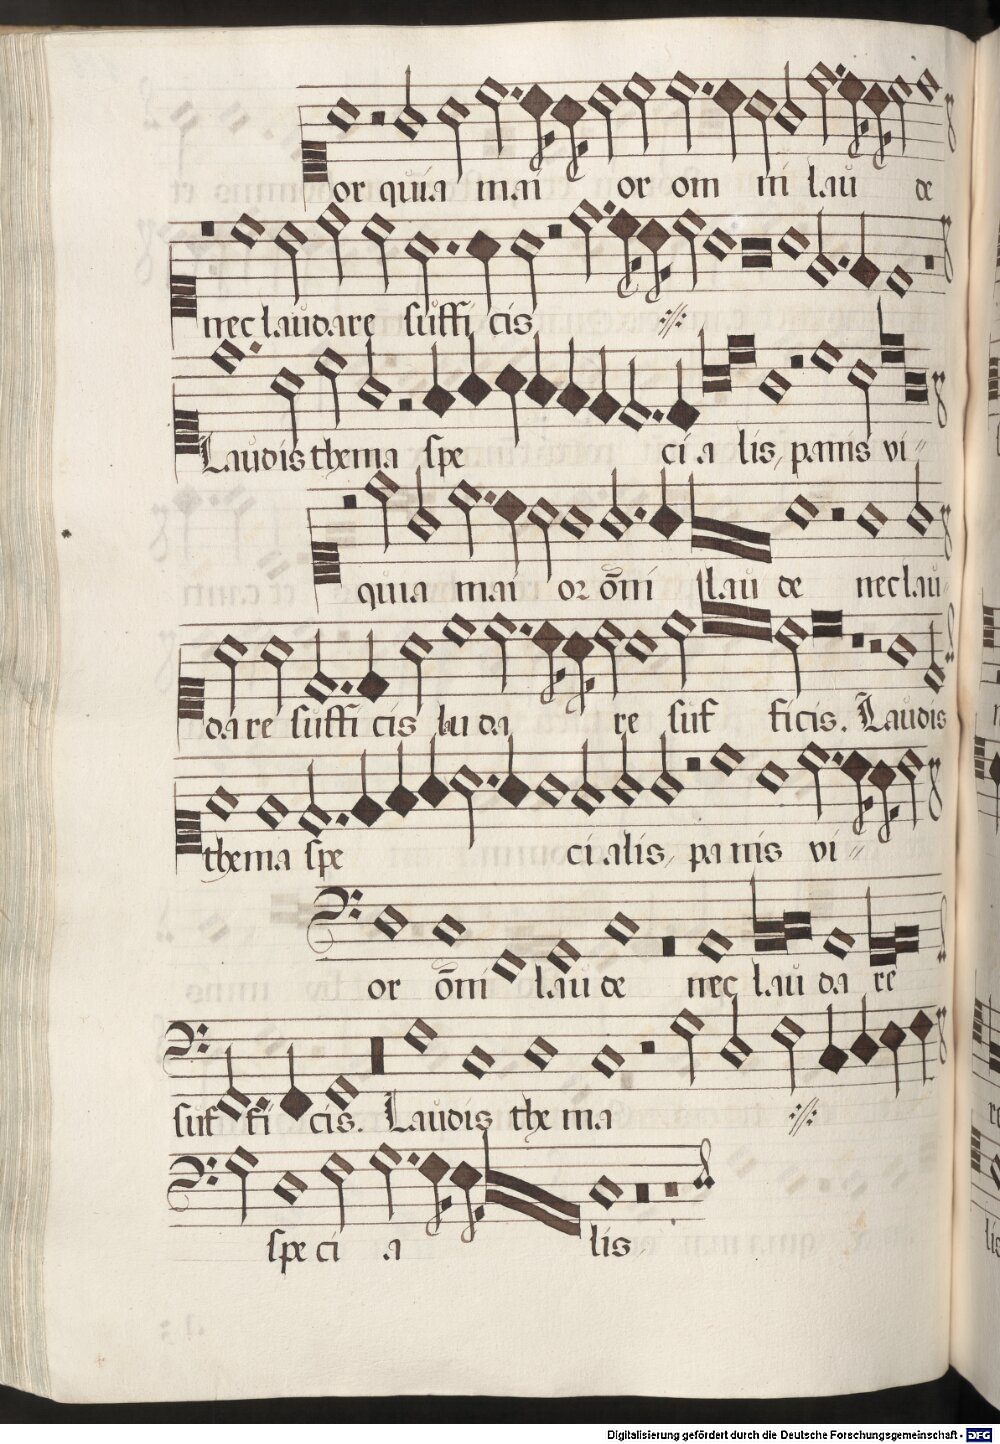 or quia mai or om ni lau de
nec laudare suffi cis
Laudis thema spe ci a lis, panis vi
quia mai or om̅i lau de nec lau
da re suffi cis lau da re suf ficis. Laudis
thema spe ci alis, panis vi
or om̅i lau de nec lau da re
suf fi cis. Laudis the ma
spe ci a lis
Digitalisierung gefördert durch die Deutsche Forschungsgemeinschaft - DFG